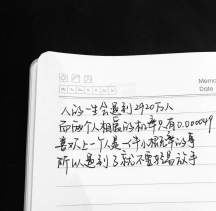 Memo
Date
Mo Tu We Th Fr Sa Su
人的一生会遇到2920万人
而两个人相爱的概率只有0.000049
喜欢上一个人是一件小概率的事
所以遇到了就不要轻易放手